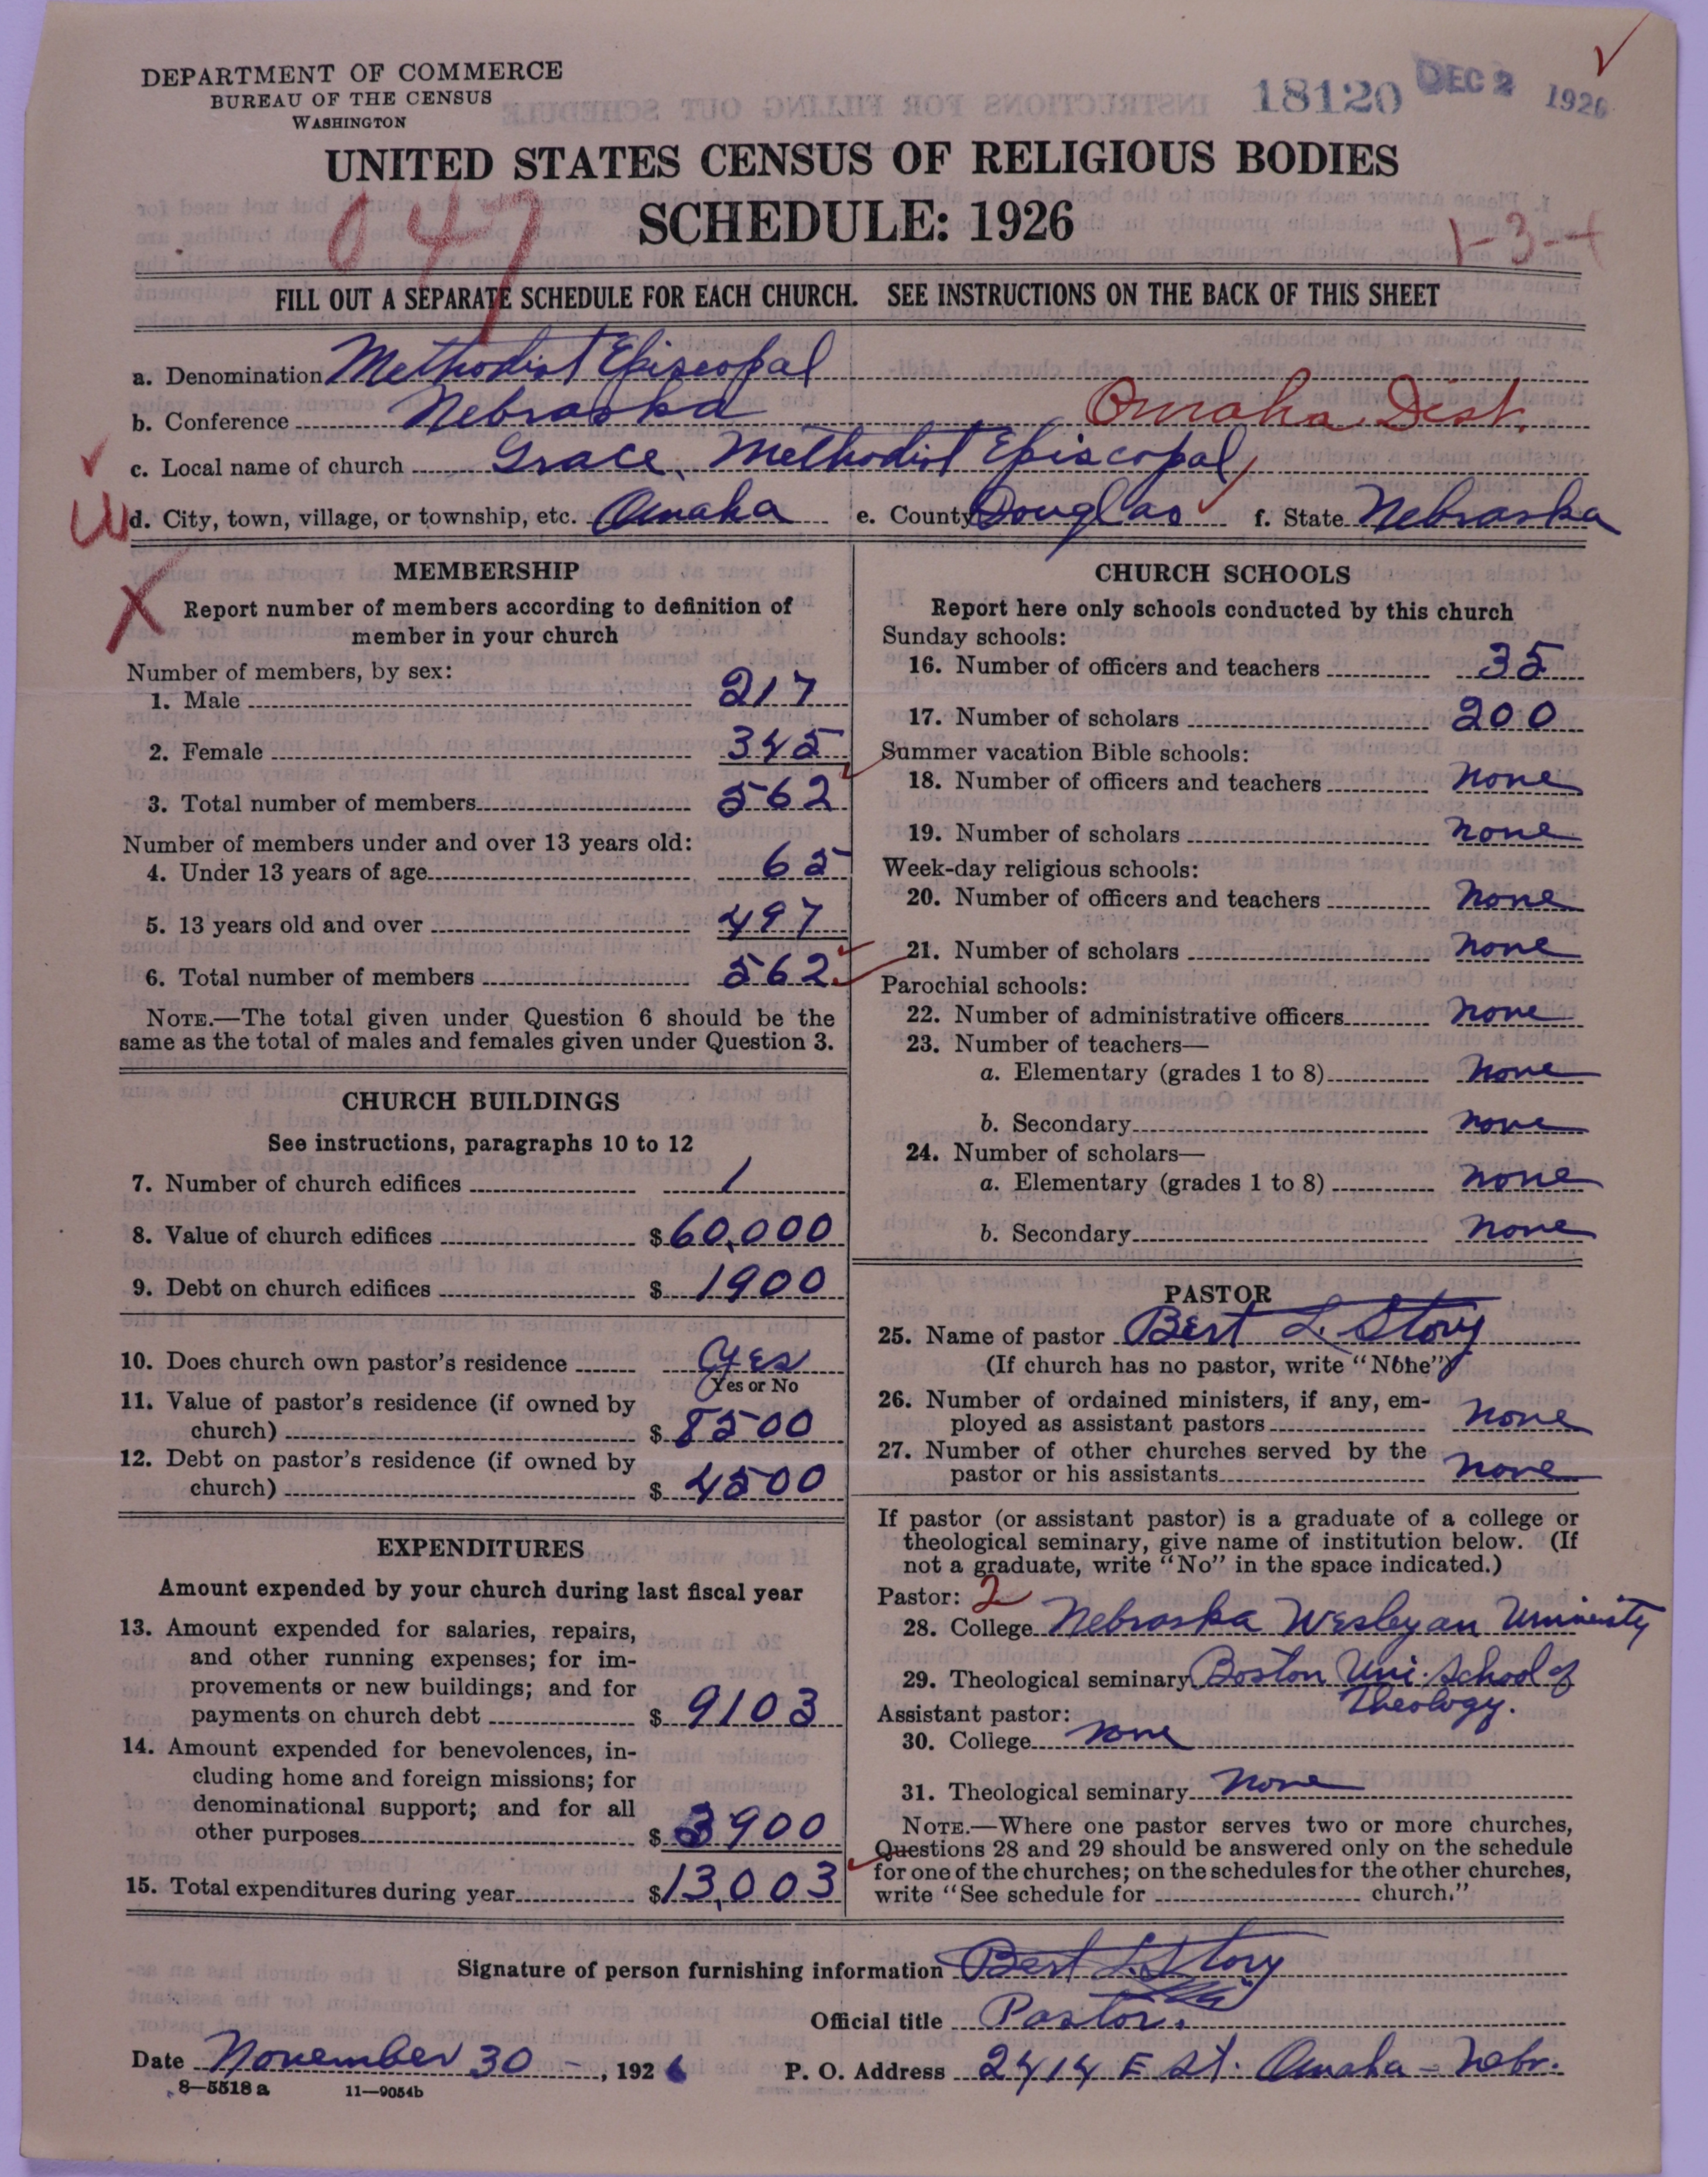 DEPARTMENT OF COMMERCE
BUREAU OF THE CENSUS
WASHINGTON
18120 DEC 2 1926
UNITED STATES CENSUS OF RELIGIOUS BODIES
047 SCHEDULE: 1926
1-3-4
FILL OUT A SEPARATE SCHEDULE FOR EACH CHURCH. SEE INSTRUCTIONS ON THE BACK OF THIS SHEET
a. Denomination Methodist Episcopal
b. Conference Nebraska Omaha Dist.
c. Local name of church Grace Methodist Episcopal
d. City, town, village, or township, etc. Omaha e. County Douglas f. State Nebraska
MEMBERSHIP
Report number of members according to definition of
member in your church
Number of members, by sex:
1. Male 217
2. Female 345
3. Total number of members 562
Number of members under and over 13 years old:
4. Under 13 years of age 65
5. 13 years old and over 497
6. Total number of members 562
NOTE.—The total given under Question 6 should be the
same as the total of males and females given under Question 3.
CHURCH BUILDINGS
See instructions, paragraphs 10 to 12
7. Number of church edifices 1
8. Value of church edifices $60,000
9. Debt on church edifices $1900
10. Does church own pastor's residence Yes
Yes or No
11. Value of pastor's residence (if owned by
church) $8500
12. Debt on pastor's residence (if owned by
church) $4500
EXPENDITURES
Amount expended by your church during last fiscal year
13. Amount expended for salaries, repairs,
and other running expenses; for im-
provements or new buildings; and for
payments on church debt $9103
14. Amount expended for benevolences, in-
cluding home and foreign missions; for
denominational support; and for all
other purposes $3900
15. Total expenditures during year $13,003
CHURCH SCHOOLS
Report here only schools conducted by this church
Sunday schools:
16. Number of officers and teachers 35
17. Number of scholars 200
Summer vacation Bible schools:
18. Number of officers and teachers None
19. Number of scholars none
Week-day religious schools:
20. Number of officers and teachers None
21. Number of scholars None
Parochial schools:
22. Number of administrative officers None
23. Number of teachers—
a. Elementary (grades 1 to 8) None
b. Secondary none
24. Number of scholars—
a. Elementary (grades 1 to 8) none
b. Secondary none
PASTOR
25. Name of pastor Bert L. Story
(If church has no pastor, write "None")
26. Number of ordained ministers, if any, em-
ployed as assistant pastors none
27. Number of other churches served by the
pastor or his assistants none
If pastor (or assistant pastor) is a graduate of a college or
theological seminary, give name of institution below. (If
not a graduate, write "No" in the space indicated.)
Pastor: 2
28. College Nebraska Wesleyan University
29. Theological seminary Boston Uni. School of
Theology.
Assistant pastor:
30. College none
31. Theological seminary none
NOTE.—Where one pastor serves two or more churches,
Questions 28 and 29 should be answered only on the schedule
for one of the churches; on the schedules for the other churches,
write "See schedule for church."
Signature of person furnishing information Bert L. Story
Official title Pastor.
Date November 30 -, 1926 P. O. Address 2414 E St. Omaha - Nebr.
8—5518 a 11—9054b